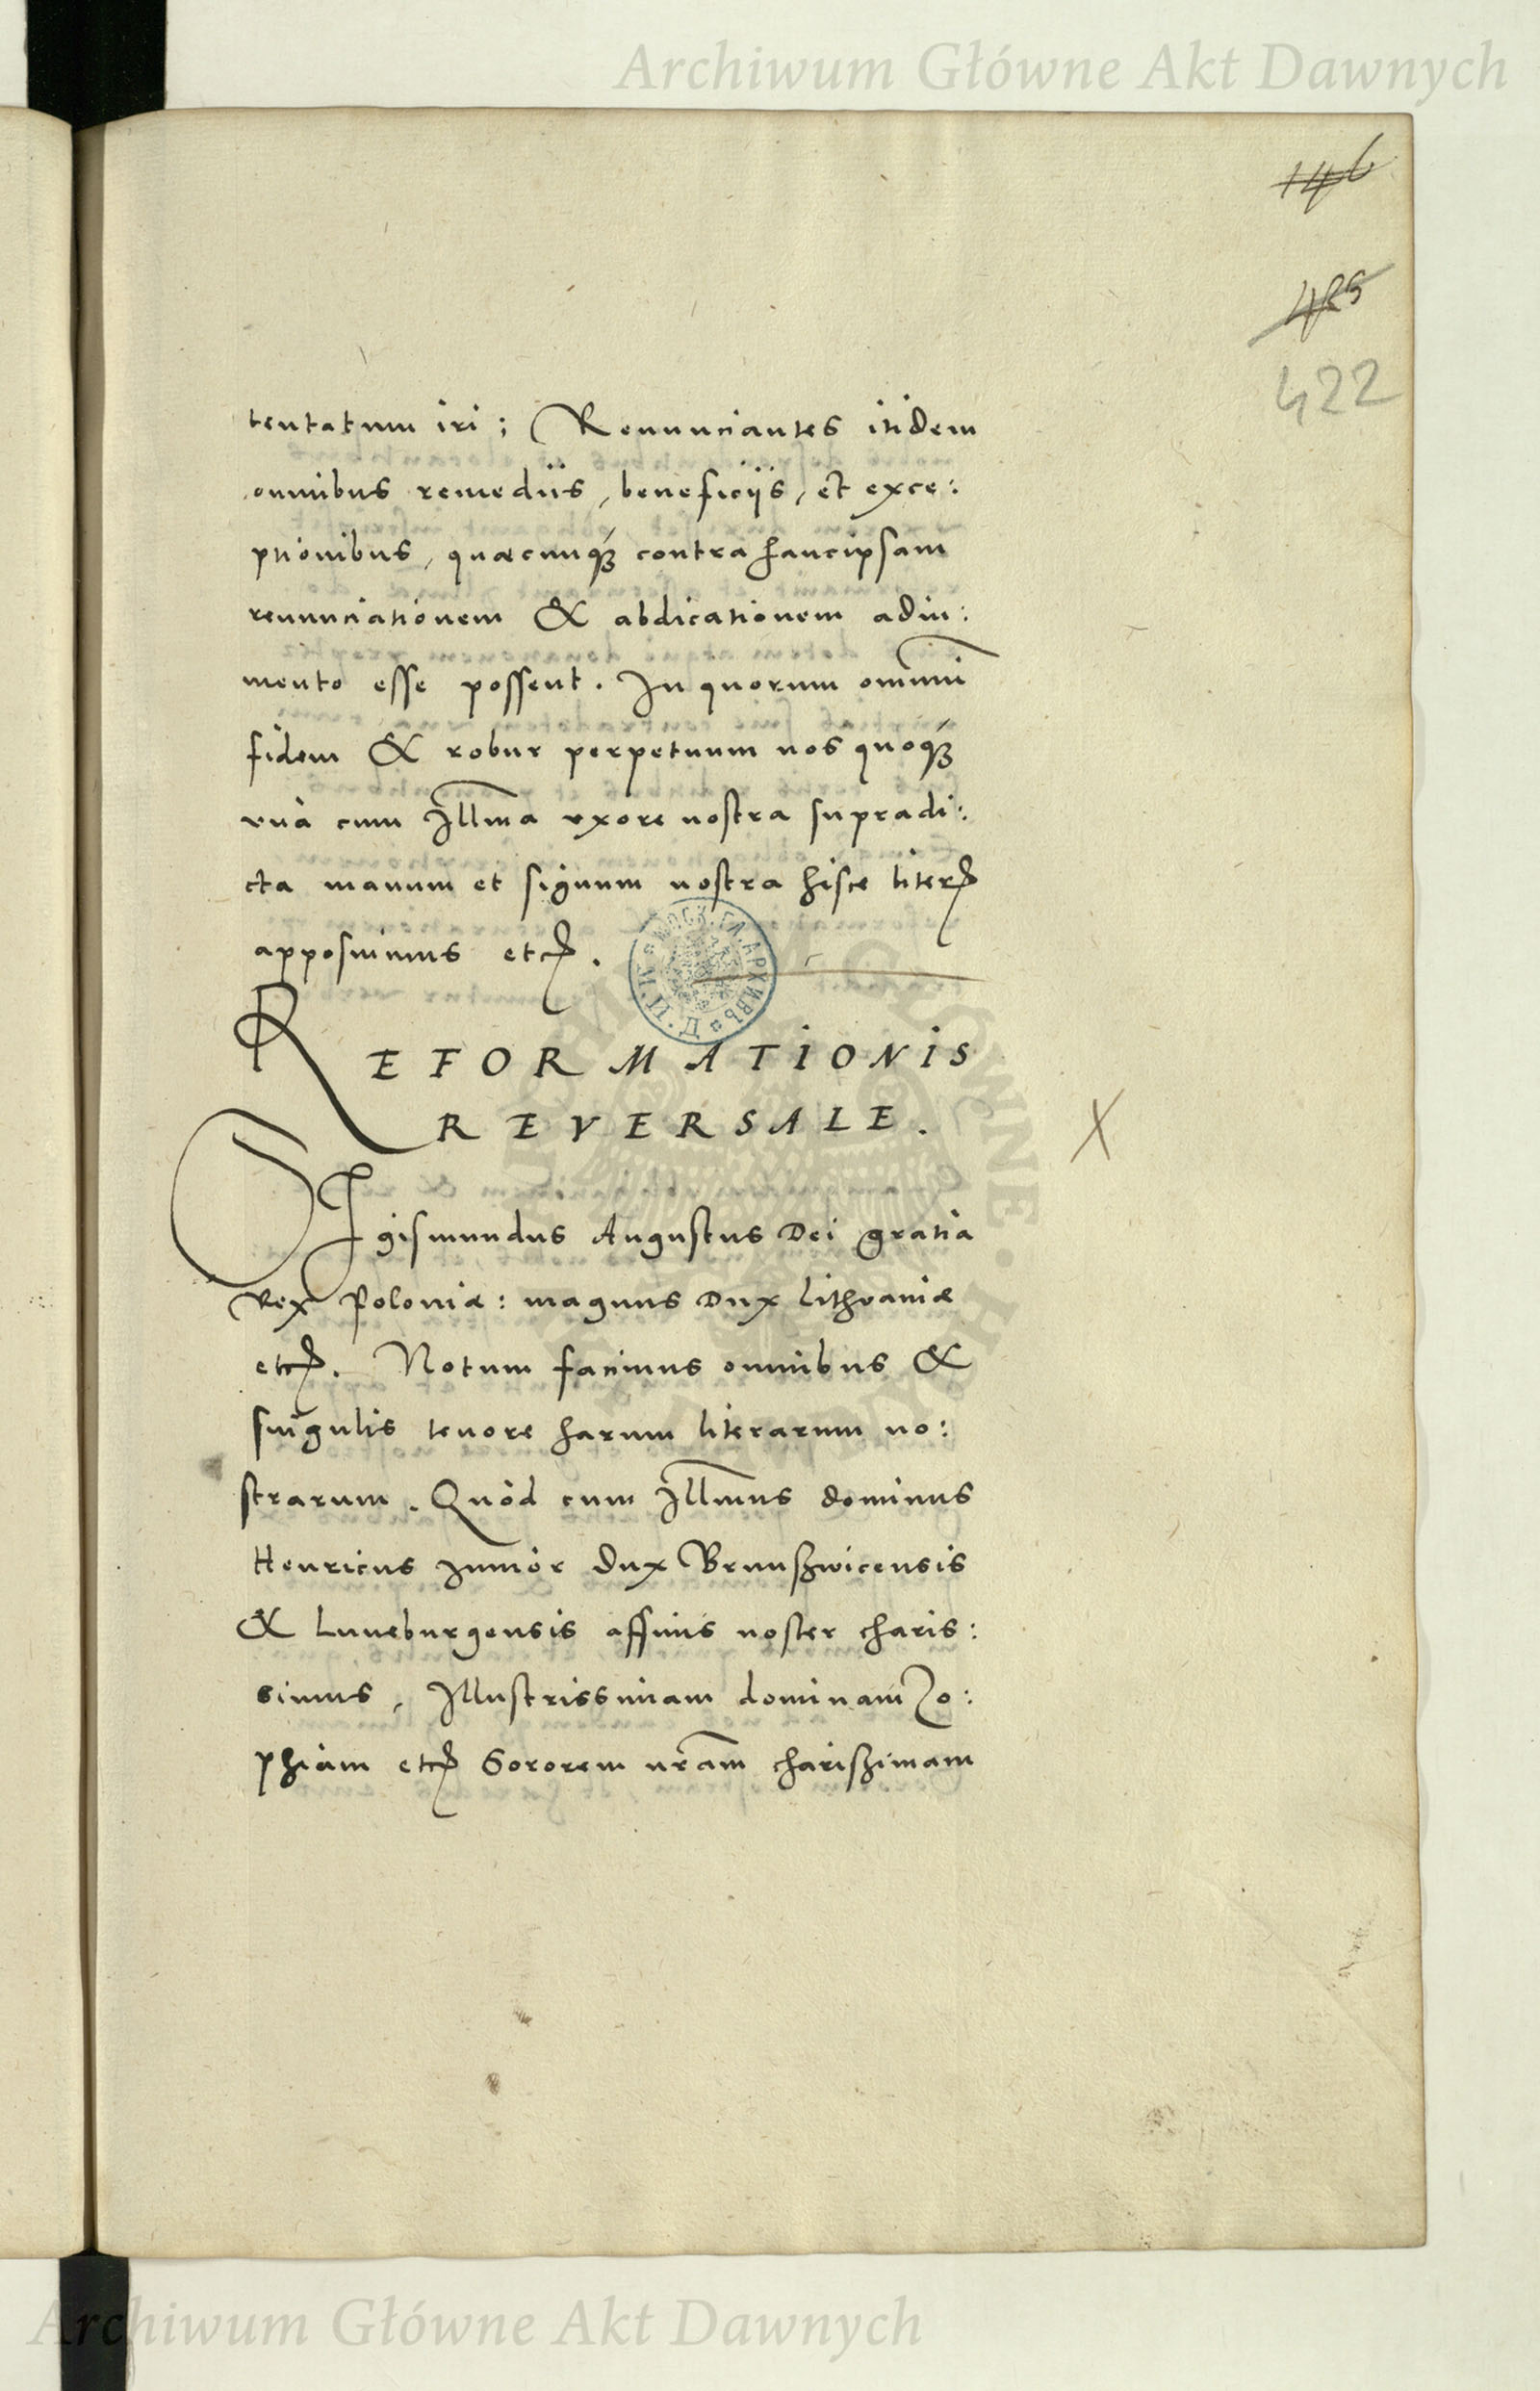 Archiwum Główne Akt Dawnych
146
422
tentatum iri; Renunciantes itidem
omnibus remediis, beneficiis, et exce:
ptionibus, quæcunq́ꝫ contra hancipsam
renunciationem & abdicationem adiu:
mento esse possent. In quorum omniū
fidem & robur perpetuum nos quoq́ꝫ
vnà cum Illma vxore nostra supradi:
cta manum et signum nostra hisce literꝭ
apposuimus etcꝭ.
REFORMATIONIS
REVERSALE.
SIgismundus Augustus Dei gratia
Rex Poloniæ: magnus Dux Lithvaniæ
etcꝭ. Notum facimus omnibus &
singulis tenore harum literarum no:
strarum. Quòd cum Illmus dominus
Henricus Iunior Dux Brunßwicensis
& Luneburgensis affinis noster charis:
simus, Illustrissimam dominam Zo:
phiam etcꝭ Sororem nr̄am charißimam
X
Archiwum Główne Akt Dawnych